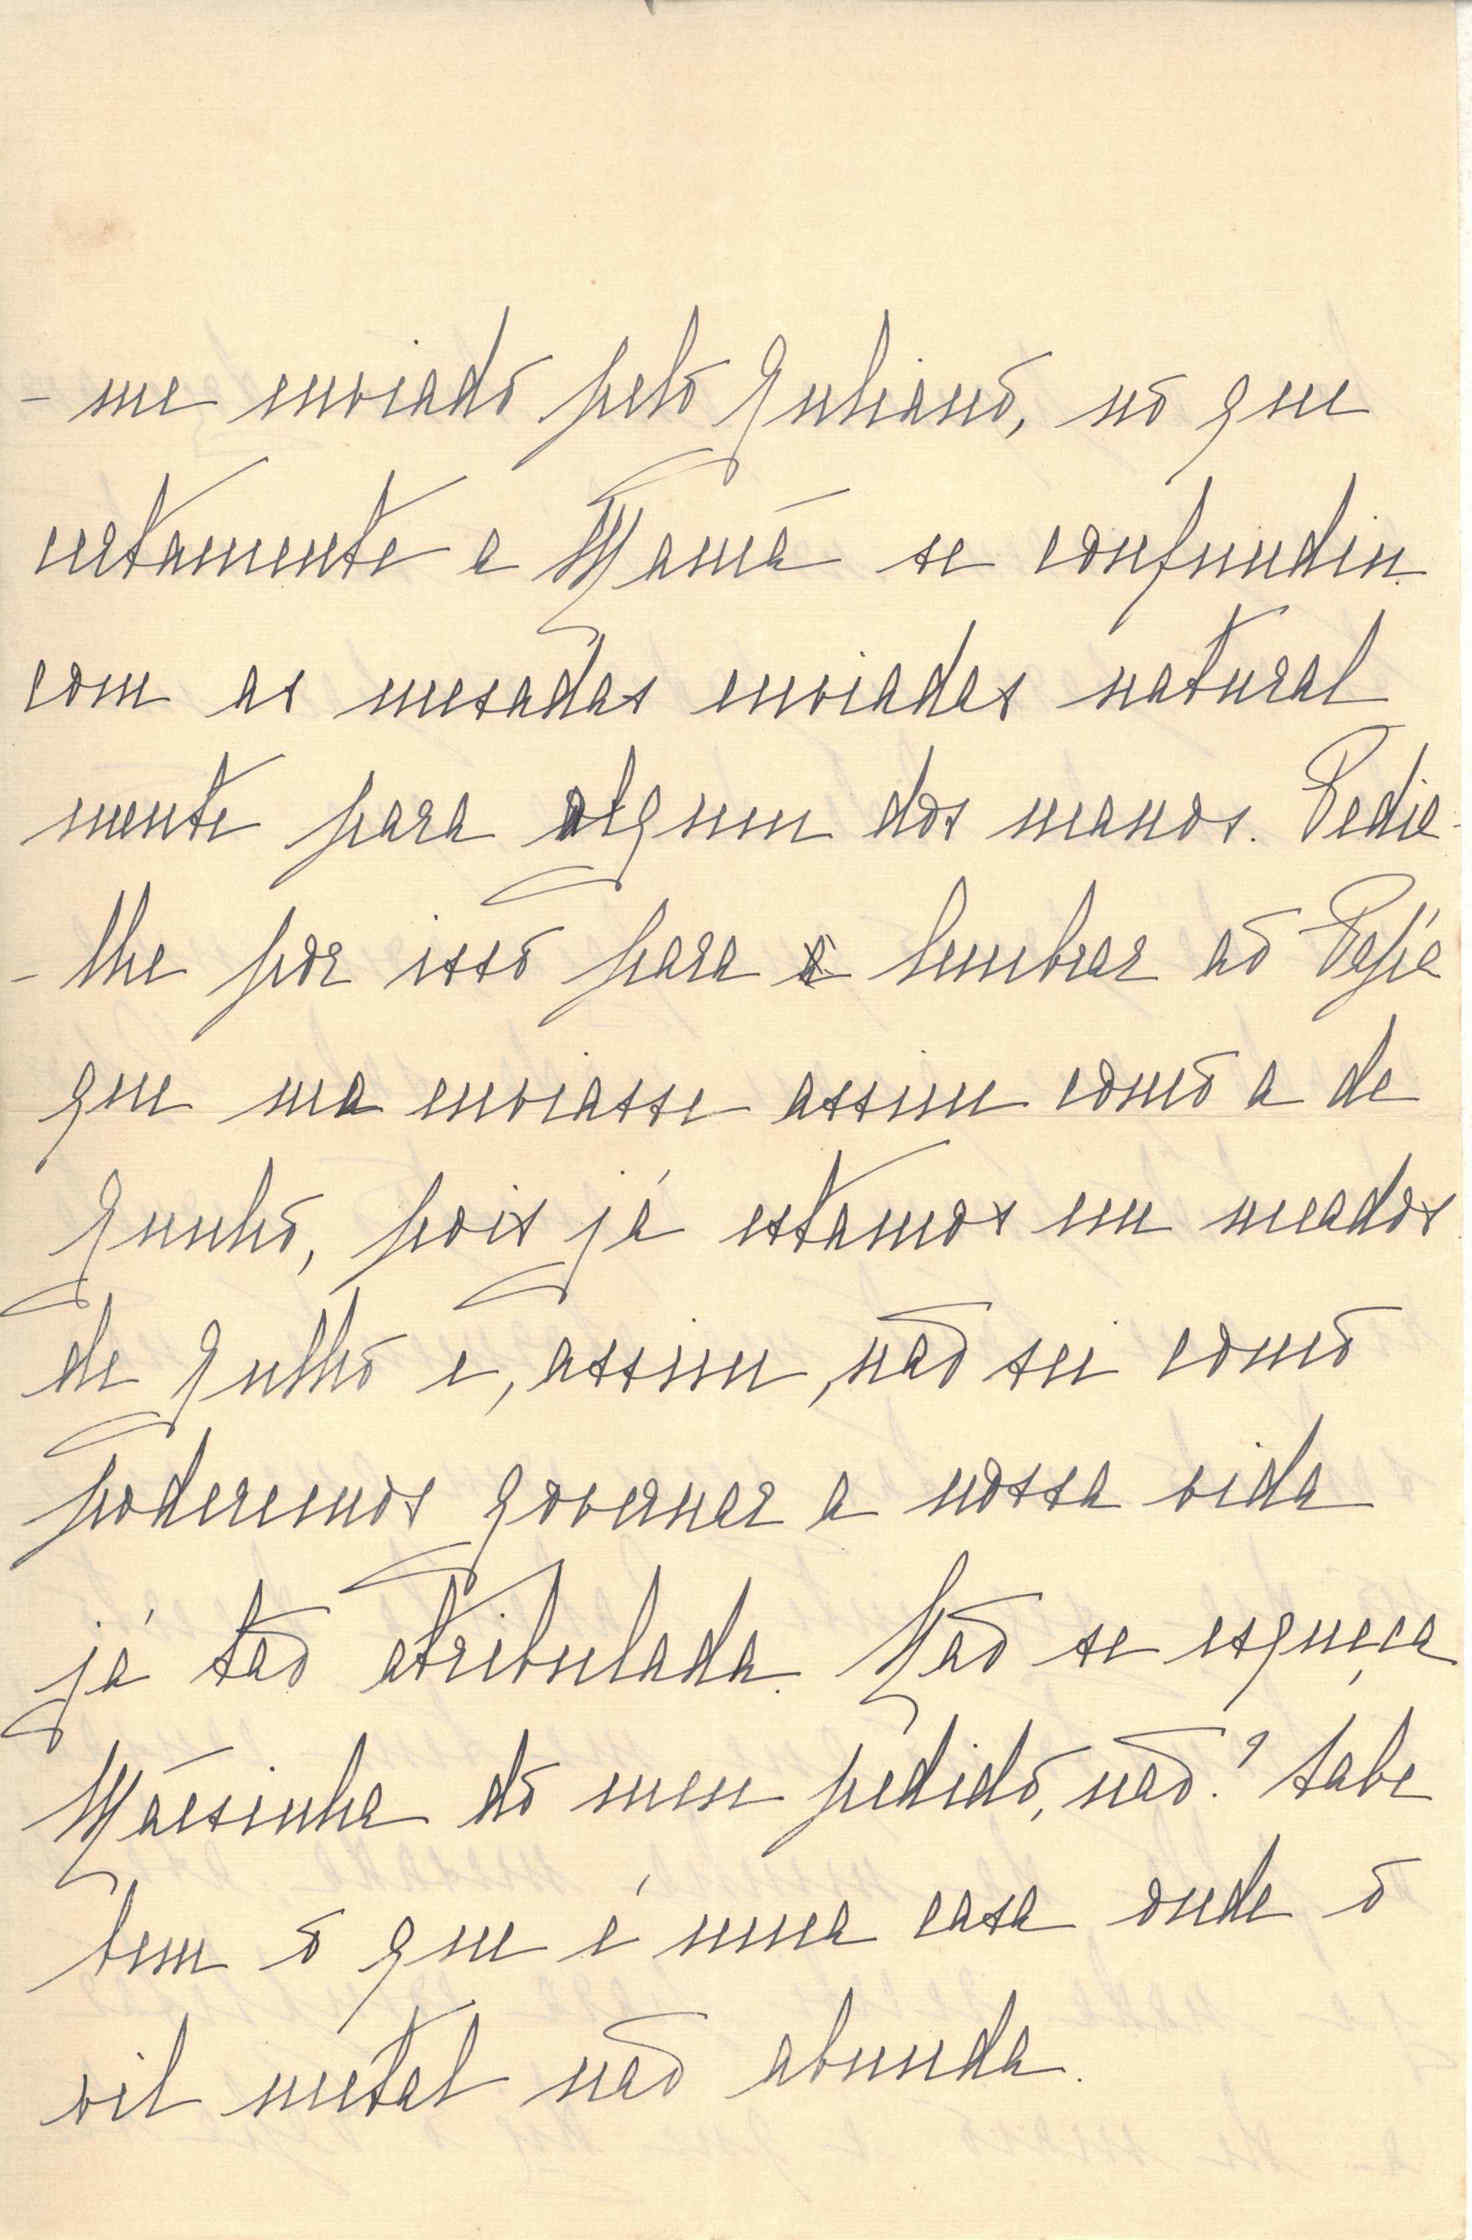 - me enviado pelo Juliano, no que
certamente a Mamã se confundiu
com as mesadas enviadas natural
mente para algum dos manos. Pedia-
- lhe por isso para lembrar ao Papá
que ma enviasse assim como a de
Junho, pois já estamos em meados
de Julho e, assim, não sei como
poderemos governar a nossa vida
já tão atribulada. Não se esqueça
Mãesinha do meu pedido, não? Sabe
bem o que é uma casa onde o
vil metal não abunda.